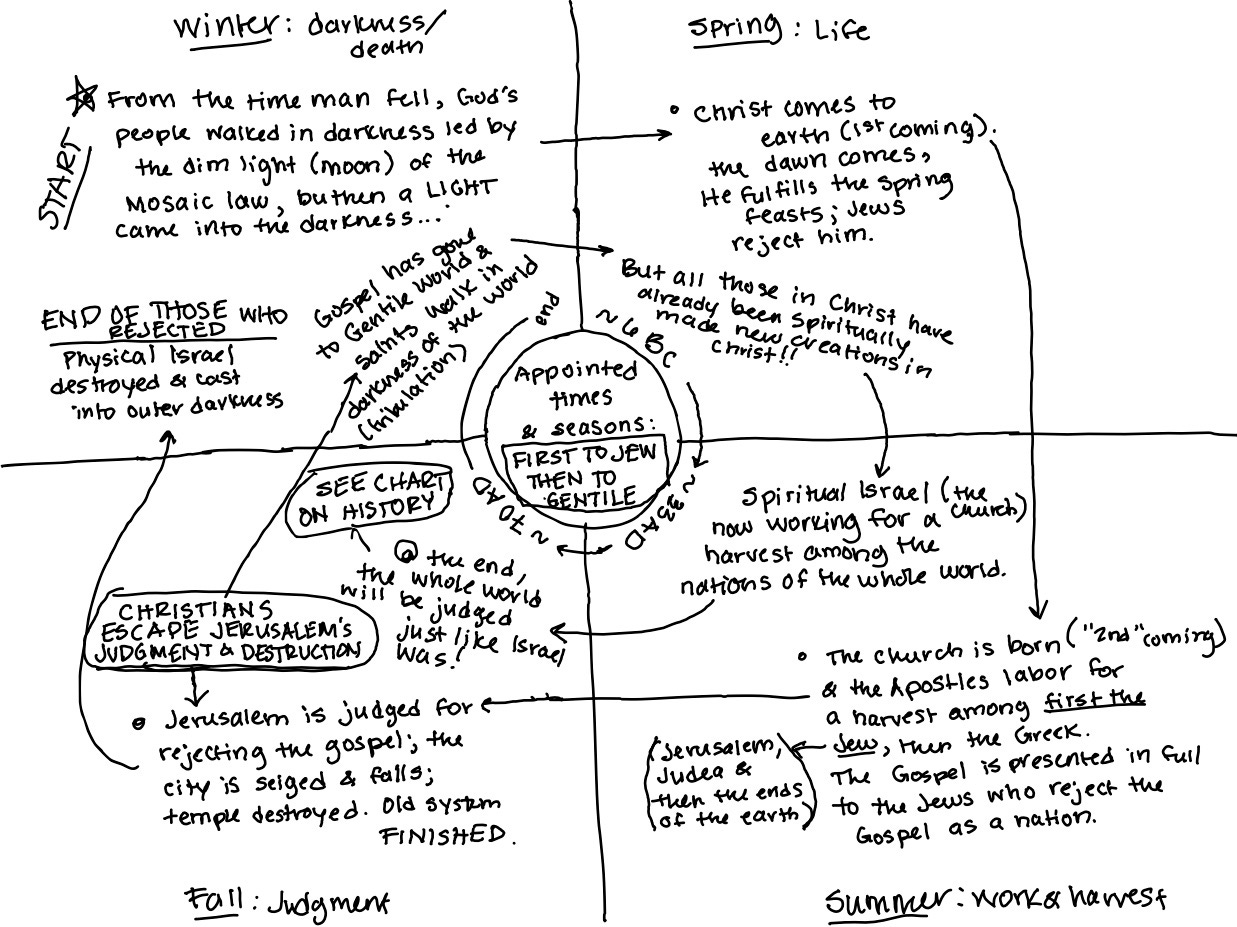 Winter: darkness/
death
START
From the time man fell, God's
people walked in darkness led by
the dim light (moon) of the
Mosaic law, but then a LIGHT
came into the darkness....
Spring: Life
Christ comes to
earth (1st coming).
the dawn comes,
He fulfills the spring
feasts; Jews
reject him.
END OF THOSE WHO
REJECTED
Physical Israel
destroyed & cast
into outer darkness
Gospel has gone
to Gentile world &
saints walk in
darkness of the world
(tribulation)
But all those in Christ have
already been spiritually
made new creations in
Christ!!
end
~6 BC
~33AD
~70 AD
Appointed
times
& seasons:
FIRST TO JEW
THEN TO
GENTILE
SEE CHART
ON HISTORY
@ the end,
the whole world
will be judged
just like Israel
was!
Spiritual Israel (the
church)
now working for a
harvest among the
nations of the whole world.
CHRISTIANS
ESCAPE JERUSALEM'S
JUDGMENT & DESTRUCTION
Jerusalem is judged for
rejecting the gospel; the
city is seiged & falls;
temple destroyed. Old system
FINISHED.
The church is born ("2nd" coming)
& the Apostles labor for
a harvest among first the
Jew, then the Greek.
The Gospel is presented in full
to the Jews who reject the
Gospel as a nation.
(Jerusalem,
Judea &
then the ends
of the earth)
Fall: Judgment
Summer: work & harvest